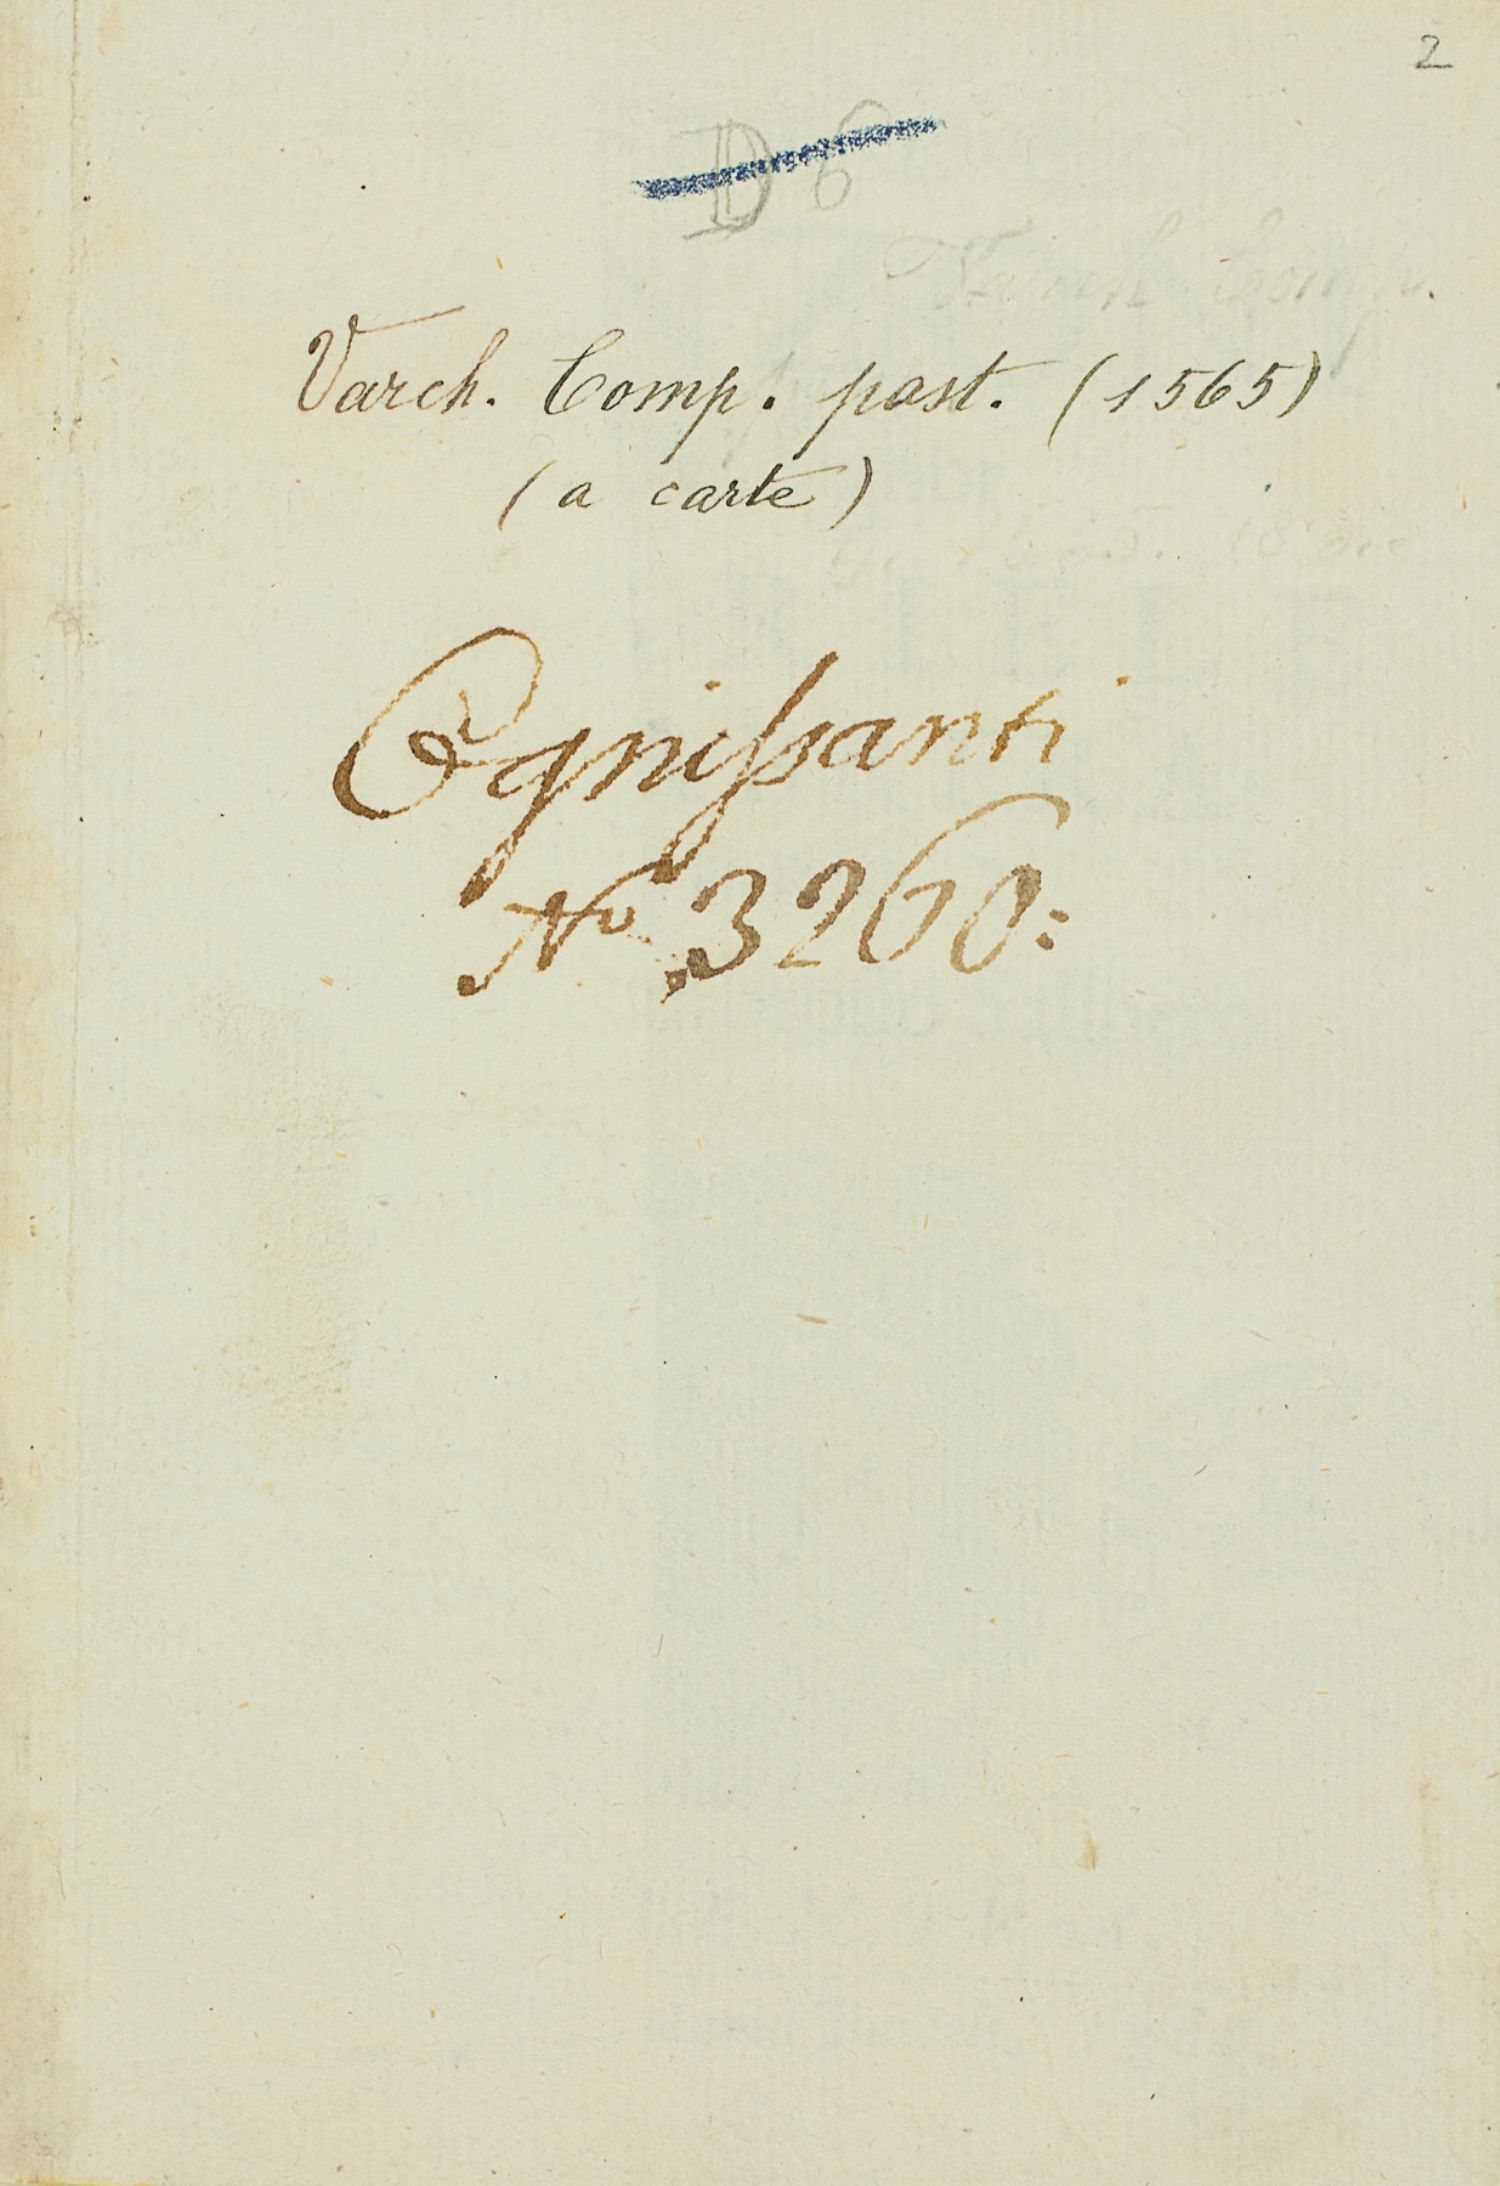 2
D 6
Varch. Comp. past. (1565)
(a carte)
Ognissanti
No. 3260: